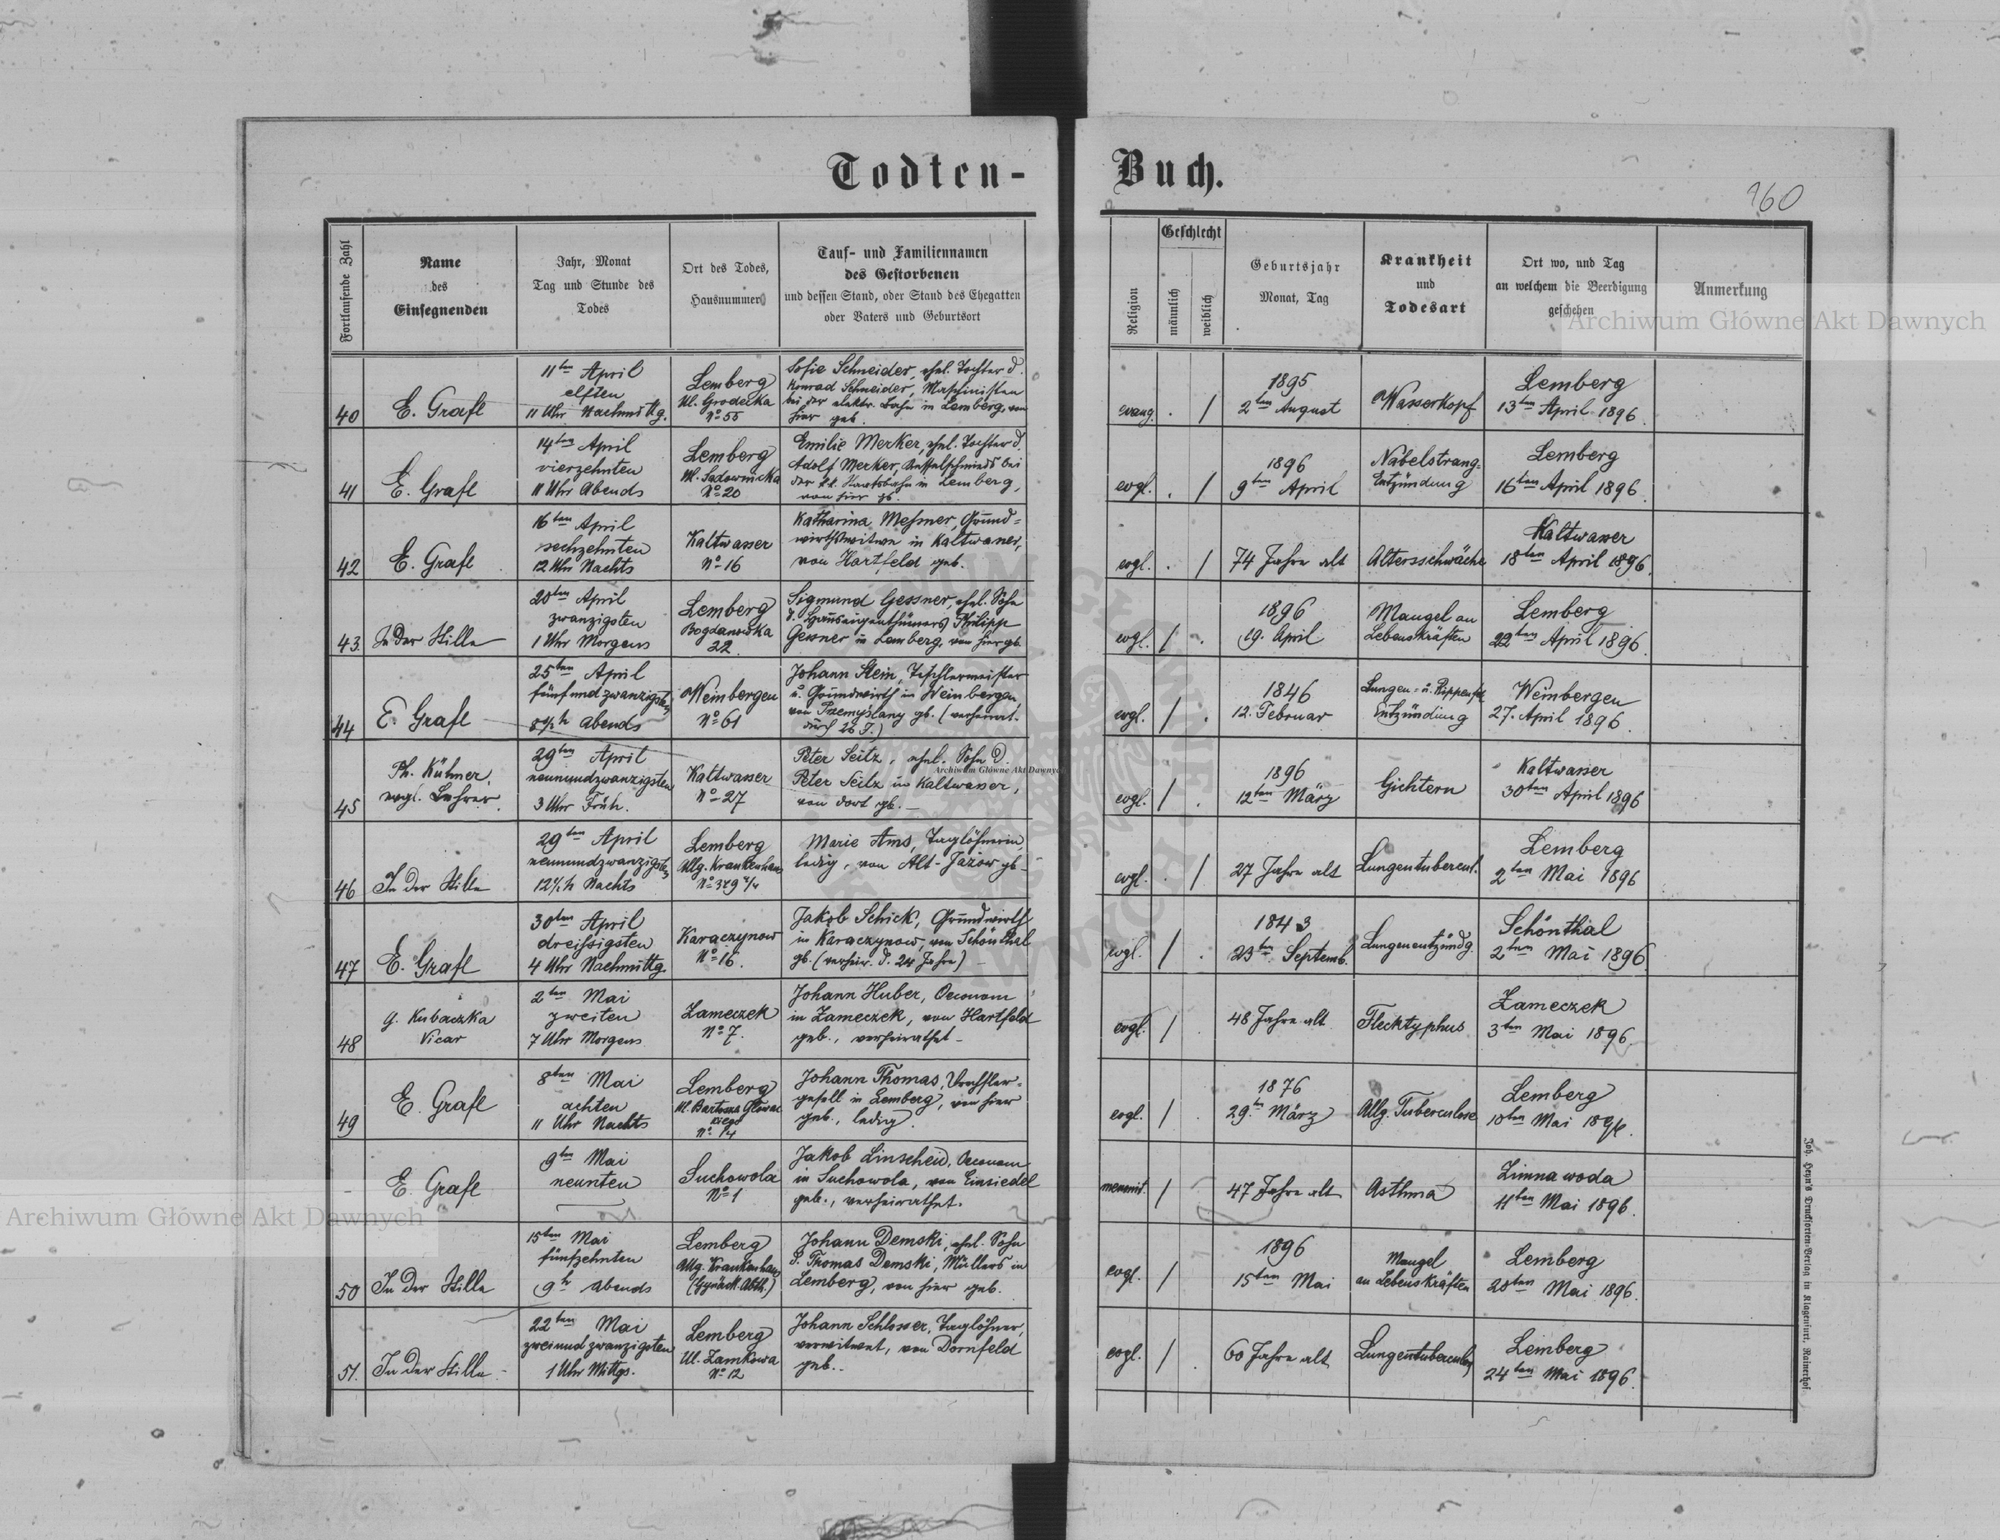 Todten- Buch.
160
Fortlaufende Zahl
Name
des
Einsegnenden
Jahr, Monat
Tag und Stunde des
Todes
Ort des Todes,
Hausnummer
Tauf- und Familiennamen
des Gestorbenen
und dessen Stand, oder Stand des Ehegatten
oder Vaters und Geburtsort
Religion
Geschlecht
männlich
weiblich
Geburtsjahr
Monat, Tag
Krankheit
und
Todesart
Ort wo, und Tag
an welchem die Beerdigung
geschehen
Anmerkung
Archiwum Główne Akt Dawnych
40
E. Grafl
11ten April
elften
11 Uhr Nachmittg.
Lemberg
Ul. Grodecka
No 55
Sofie Schneider, ehel. Tochter d.
Konrad Schneider, Maschinisten
bei der elektr. Bahn in Lemberg, von
hier geb.
evang. . /
1895
2ten August
Wasserkopf
Lemberg
13ten April 1896.
41
E. Grafl
14ten April
vierzehnten
11 Uhr Abends
Lemberg
Ul. Sadownicka
No 20
Emilie Merker, ehel. Tochter d.
Adolf Merker, Kesselschmieds bei
der k.k. Staatsbahn in Lemberg,
von hier gb.
evgl. . /
1896
9ten April
Nabelstrang-
Entzündung
Lemberg
16ten April 1896.
42
E. Grafl
16ten April
sechzehnten
12 Uhr Nachts
Kaltwasser
No 16
Katharina Meßner, Grund-
wirthswitwe in Kaltwasser,
von Hartfeld geb.
evgl. . /
74 Jahre alt
Altersschwäche
Kaltwasser
18ten April 1896.
43.
In der Stille
20ten April
zwanzigsten
1 Uhr Morgens
Lemberg
Bogdanowka
22.
Sigmund Gessner, ehel. Sohn
d. Hauseigenthümers Philipp
Gessner in Lemberg, von hier gb.
evgl. / .
1896
19. April
Mangel an
Lebenskräften
Lemberg
22ten April 1896.
44
E. Grafl
25ten April
fünfundzwanzigsten
8½ h Abends
Weinbergen
No 61
Johann Stein, Tischlermeister
u. Grundwirth in Weinbergen
von Przemyślany gb. (verheirat.
durch 26 J.)
evgl. / .
1846
12. Februar
Lungen- u. Rippenfel
Entzündung
Weinbergen
27. April 1896.
45
Ph. Kühner,
evgl. Lehrer.
29ten April
neunundzwanzigsten
3 Uhr Früh.
Kaltwasser
No 27
Peter Seitz, ehel. Sohn d.
Archiwum Główne Akt Dawnych
Peter Seitz in Kaltwasser,
von dort gb. —
evgl. / .
1896
12ten März
Gichtern
Kaltwasser
30ten April 1896
46
In der Stille
29ten April
neunundzwanzigsten
12½ h Nachts
Lemberg
Allg. Krankenhaus
No 379 2/4
Marie Ams, Taglöhnerin,
ledig, von Alt-Jazow gb —
evgl. . /
27 Jahre alt
Lungentubercul.
Lemberg
2ten Mai 1896
47
E. Grafl
30ten April
dreissigsten
4 Uhr Nachmittg.
Karaczynow
No 16.
Jakob Schick, Grundwirth
in Karaczynow, von Schönthal
gb. (verheir. d. 24 Jahre) —
evgl. / .
1843
23ten Septemb.
Lungenentzündg.
Schönthal
2ten Mai 1896.
48
G. Kubaczka
Vicar
2ten Mai
zweiten
7 Uhr Morgens
Zameczek
No 7.
Johann Huber, Oeconom
in Zameczek, von Hartfeld
geb., verheirathet —
evgl. / .
48 Jahre alt
Flecktyphus
Zameczek
3ten Mai 1896.
49
E. Grafl
8ten Mai
achten
11 Uhr Nachts
Lemberg
Ul. Bartosza Głowac
kiego
No 14
Johann Thomas, Drechsler-
gesell in Lemberg, von hier
geb., ledig.
evgl. / .
1876
29.ten März
Allg. Tuberculose
Lemberg
10ten Mai 1896.
-
E. Grafl
9ten Mai
neunten
Suchowola
No 1
Jakob Linscheid, Oeconom
in Suchowola, von Einsiedel
geb., verheirathet.
mennonit. /
47 Jahre alt
Asthma
Zimnawoda
11ten Mai 1896.
Archiwum Główne Akt Dawnych
50
In der Stille
15ten Mai
fünfzehnten
9h Abends
Lemberg
Allg. Krankenhaus
(Gynäk. Abth.)
Johann Demski, ehel. Sohn
d. Thomas Demski, Müllers in
Lemberg, von hier geb.
evgl. /
1896
15ten Mai
Mangel
an Lebenskräften
Lemberg
20ten Mai 1896.
51.
In der Stille —
22ten Mai
zweiundzwanzigsten
1 Uhr Mittgs.
Lemberg
Ul. Zamkowa
No 12
Johann Schlosser, Taglöhner,
verwitwet, von Dornfeld
geb. —
evgl. / .
60 Jahre alt
Lungentuberculos
Lemberg
24ten Mai 1896.
Joh. Heyn's Drucksorten-Verlag in Klagenfurt, Rainerhof.